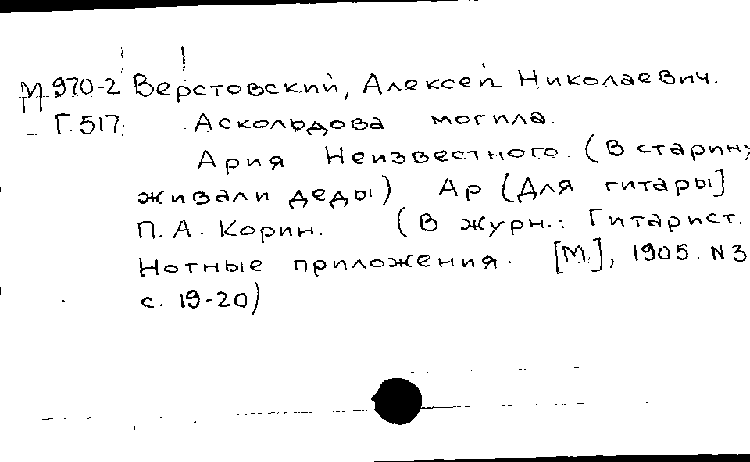 М 970-2 Верстовский, Алексей Николаевич.
Г.517. Аскольдова могила.
Ария Неизвестного. (В старину
живали деды) Ар [Для гитары]
П. А. Корин. (В журн.: Гитарист.
Нотные приложения. [М.], 1905. N3
с. 19-20)